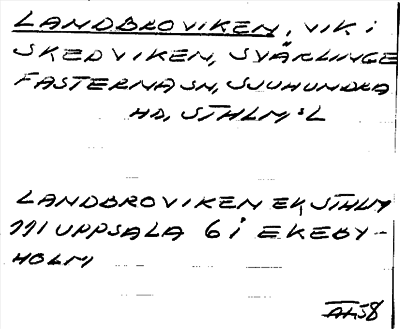 LANDBROVIKEN, VIK I
SKEDVIKEN, SVÄRLINGE
FASTERNA SN, SJUHUNDRA
HD, STHLM:S L
LANDBROVIKEN EK, STHLM
111 UPPSALA 6 I EKEBY-
HOLM
AH58